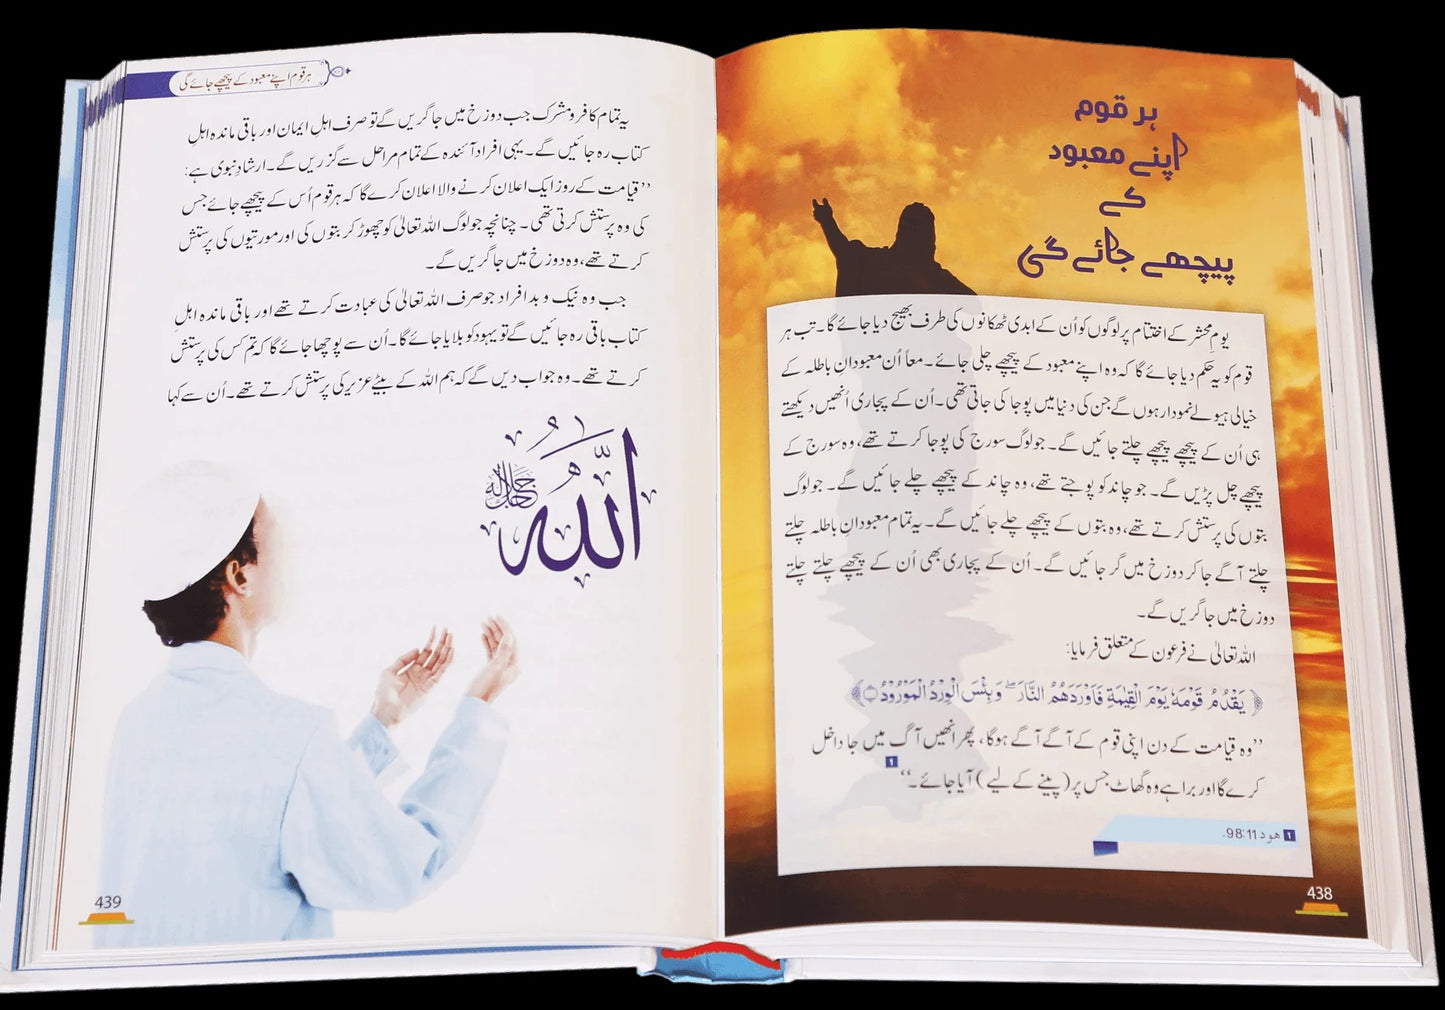 ہر قوم
اپنے معبود
کے
پیچھے جائے گی
یومِ محشر کے اختتام پر لوگوں کو اُن کے ابدی ٹھکانوں کی طرف بھیج دیا جائے گا۔ تب ہر
قوم کو یہ حکم دیا جائے گا کہ وہ اپنے معبود کے پیچھے چلی جائے۔ معاً اُن معبودانِ باطلہ کے
خیالی ہیولے نمودار ہوں گے جن کی دنیا میں پوجا کی جاتی تھی۔ اُن کے پجاری اُنھیں دیکھتے
ہی اُن کے پیچھے پیچھے چلتے جائیں گے۔ جو لوگ سورج کی پوجا کرتے تھے، وہ سورج کے
پیچھے چل پڑیں گے۔ جو چاند کو پوجتے تھے، وہ چاند کے پیچھے چلے جائیں گے۔ جو لوگ
بتوں کی پرستش کرتے تھے، وہ بتوں کے پیچھے چلے جائیں گے۔ یہ تمام معبودانِ باطلہ چلتے
چلتے آگے جا کر دوزخ میں گر جائیں گے۔ اُن کے پجاری بھی اُن کے پیچھے چلتے چلتے
دوزخ میں جا گریں گے۔
اللہ تعالیٰ نے فرعون کے متعلق فرمایا:
﴿يَقْدُمُ قَوْمَهٗ يَوْمَ الْقِيٰمَةِ فَاَوْرَدَهُمُ النَّارَ ۖ وَبِئْسَ الْوِرْدُ الْمَوْرُوْدُ﴾
”وہ قیامت کے دن اپنی قوم کے آگے آگے ہوگا، پھر انھیں آگ میں جا داخل
کرے گا اور برا ہے وہ گھاٹ جس پر (پینے کے لیے) آیا جائے۔“ 1
1 ھود 98:11.
438
ہر قوم اپنے معبود کے پیچھے جائے گی
یہ تمام کافر و مشرک جب دوزخ میں جا گریں گے تو صرف اہلِ ایمان اور باقی ماندہ اہلِ
کتاب رہ جائیں گے۔ یہی افراد آئندہ کے تمام مراحل سے گزریں گے۔ ارشادِ نبوی ہے:
”قیامت کے روز ایک اعلان کرنے والا اعلان کرے گا کہ ہر قوم اُس کے پیچھے جائے جس
کی وہ پرستش کرتی تھی۔ چنانچہ جو لوگ اللہ تعالیٰ کو چھوڑ کر بتوں کی اور مورتیوں کی پرستش
کرتے تھے، وہ دوزخ میں جا گریں گے۔
جب وہ نیک و بد افراد جو صرف اللہ تعالیٰ کی عبادت کرتے تھے اور باقی ماندہ اہلِ
کتاب باقی رہ جائیں گے تو یہود کو بلایا جائے گا۔ اُن سے پوچھا جائے گا کہ تم کس کی پرستش
کرتے تھے۔ وہ جواب دیں گے کہ ہم اللہ کے بیٹے عزیر کی پرستش کرتے تھے۔ اُن سے کہا
اللّٰہ
جل جلالہ
439